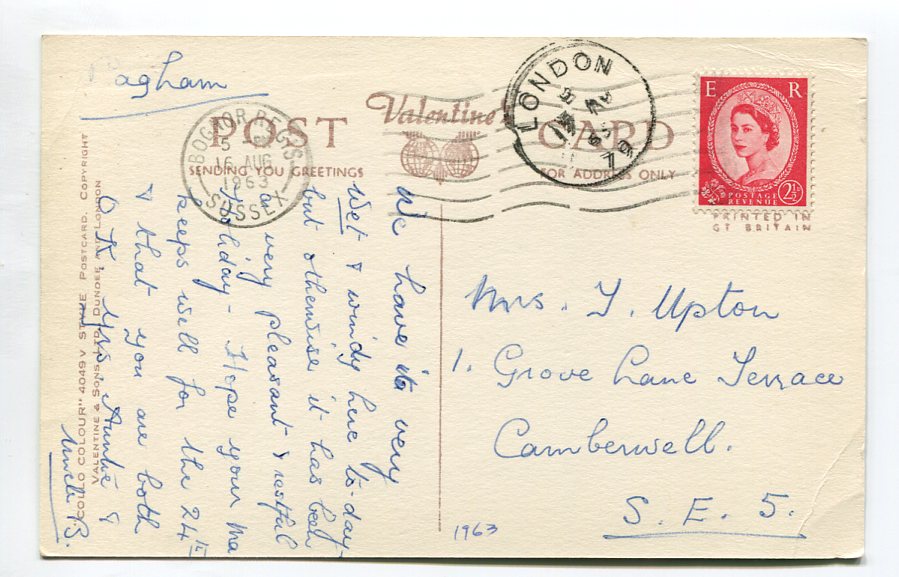 Pagham
POST Valentine's CARD
SENDING YOU GREETINGS FOR ADDRESS ONLY
BOGNOR REGIS
5
16 AUG
1963
SUSSEX
LONDON
E R
POSTAGE
REVENUE
2½
PRINTED IN
GT BRITAIN
We have it very
wet & windy here to-day
but otherwise it has been
a very pleasant & restful
holiday - Hope your Ma
keeps well for the 24th
& that you are both
O.K. Yrs. Auntie &
Uncle B.
Mrs. J. Upton
1. Grove Lane Terrace
Camberwell.
S. E. 5.
1963
COLOUR" 4049V POSTCARD. COPYRIGHT
VALENTINE & SONS LTD. DUNDEE LONDON